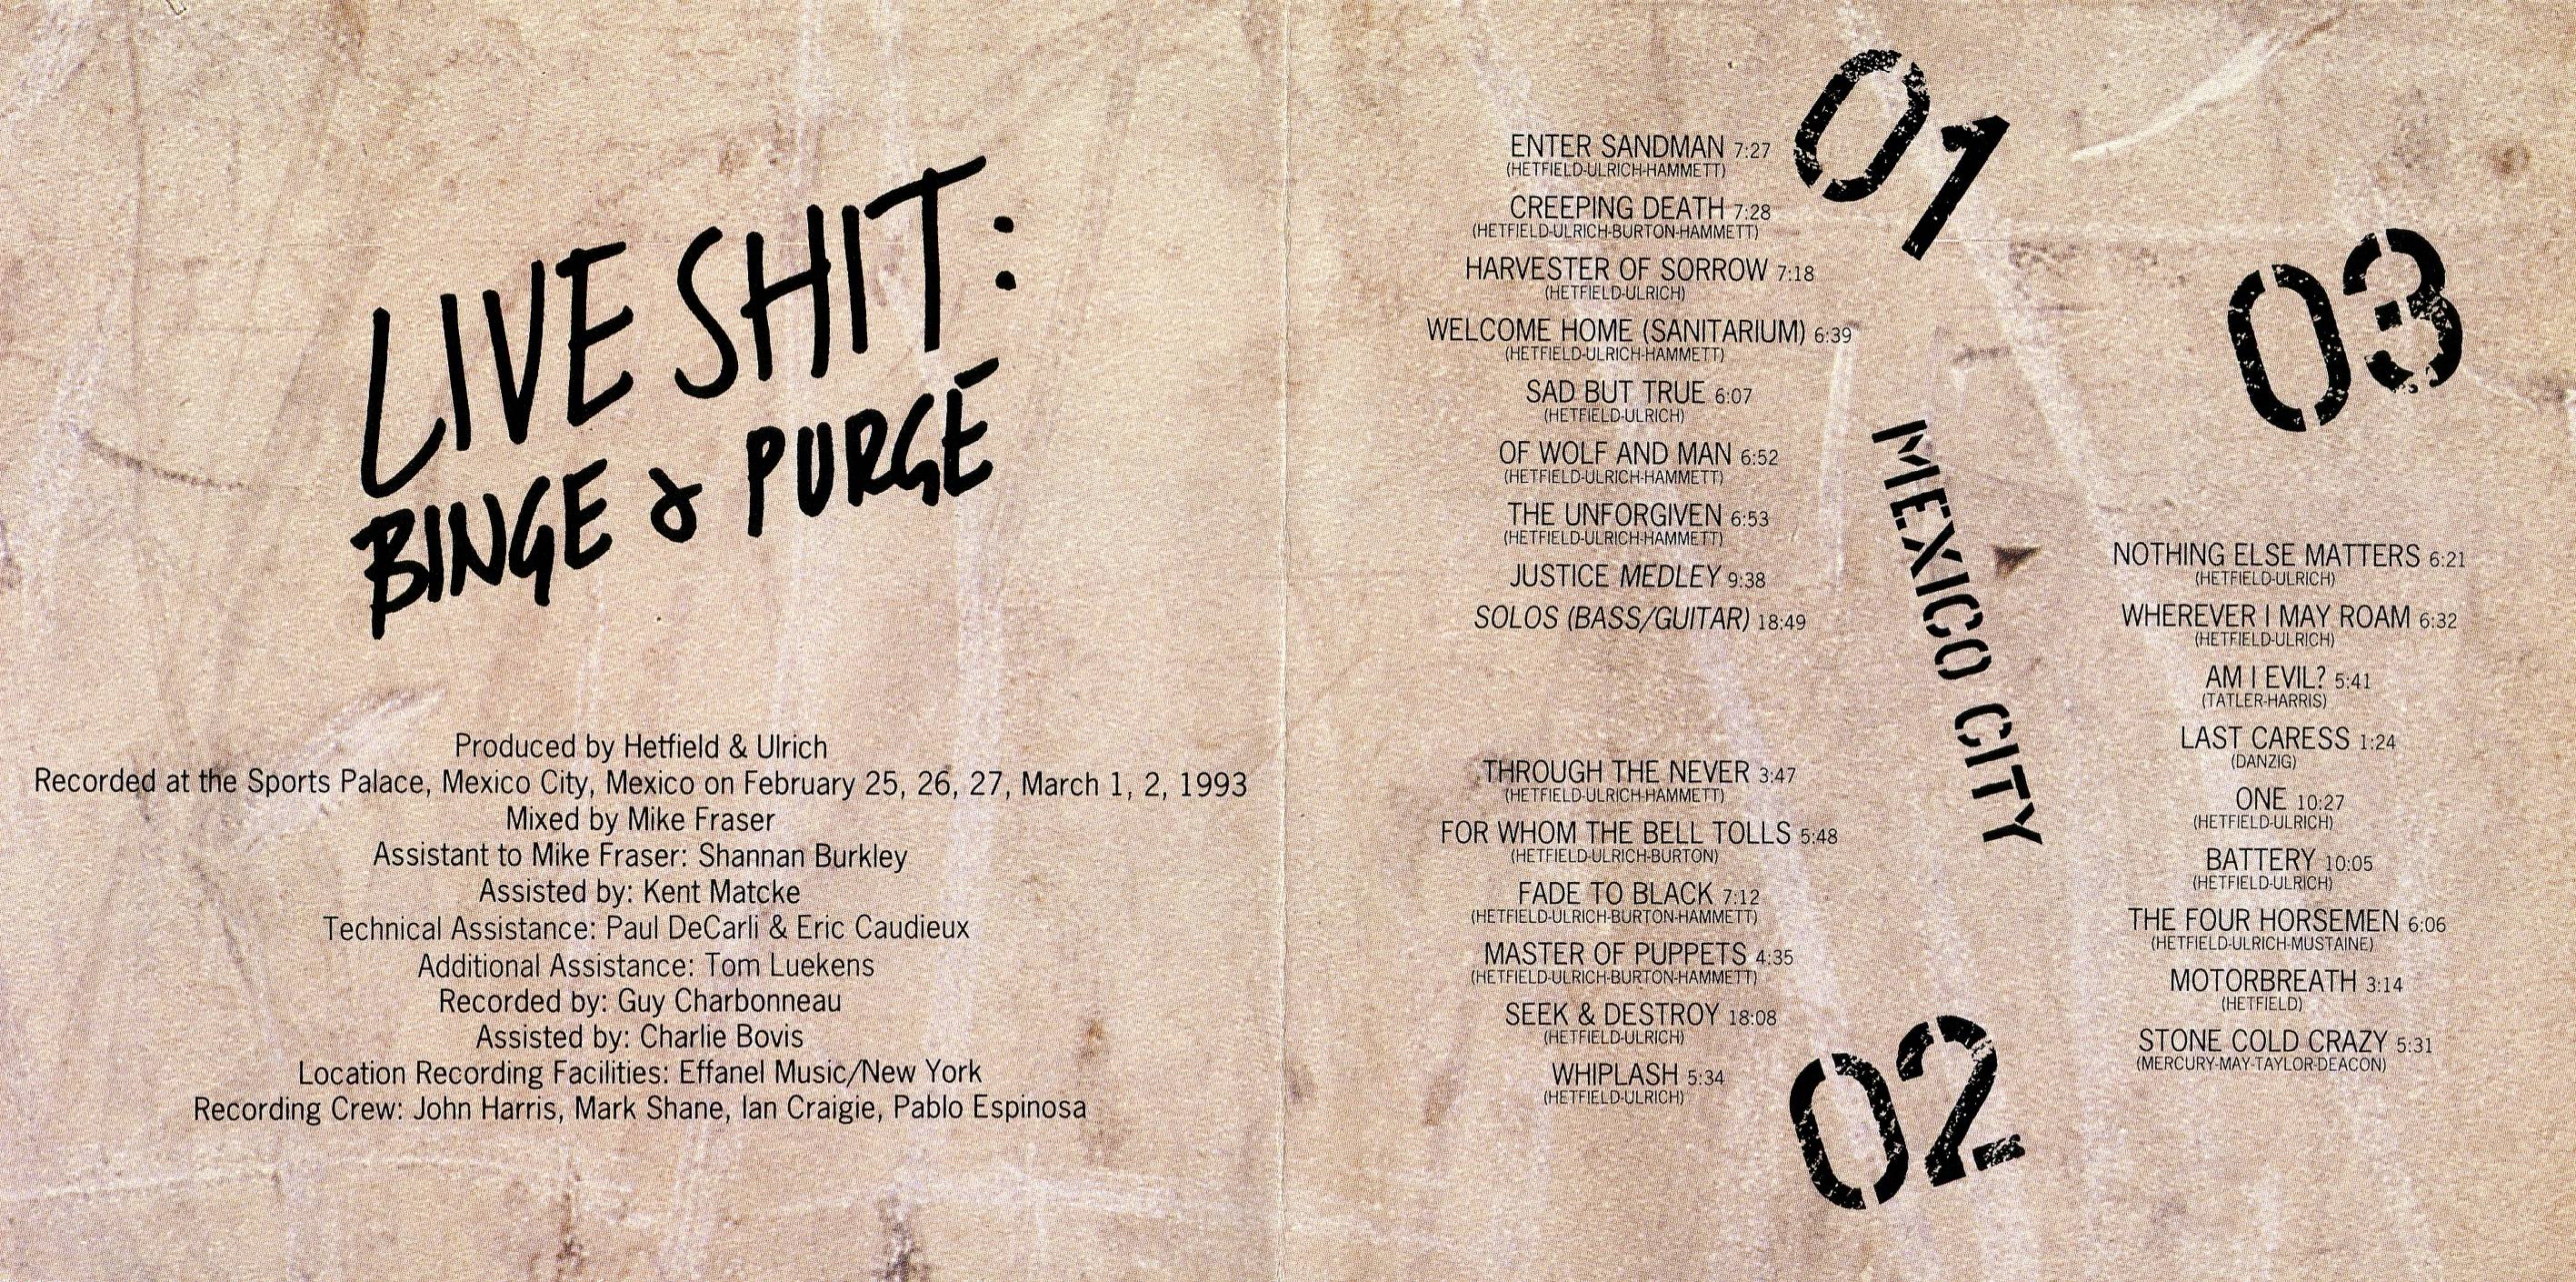 LIVE SHIT:
BINGE & PURGE
Produced by Hetfield & Ulrich
Recorded at the Sports Palace, Mexico City, Mexico on February 25, 26, 27, March 1, 2, 1993
Mixed by Mike Fraser
Assistant to Mike Fraser: Shannan Burkley
Assisted by: Kent Matcke
Technical Assistance: Paul DeCarli & Eric Caudieux
Additional Assistance: Tom Luekens
Recorded by: Guy Charbonneau
Assisted by: Charlie Bovis
Location Recording Facilities: Effanel Music/New York
Recording Crew: John Harris, Mark Shane, Ian Craigie, Pablo Espinosa
01
ENTER SANDMAN 7:27
(HETFIELD-ULRICH-HAMMETT)
CREEPING DEATH 7:28
(HETFIELD-ULRICH-BURTON-HAMMETT)
HARVESTER OF SORROW 7:18
(HETFIELD-ULRICH)
WELCOME HOME (SANITARIUM) 6:39
(HETFIELD-ULRICH-HAMMETT)
SAD BUT TRUE 6:07
(HETFIELD-ULRICH)
OF WOLF AND MAN 6:52
(HETFIELD-ULRICH-HAMMETT)
THE UNFORGIVEN 6:53
(HETFIELD-ULRICH-HAMMETT)
JUSTICE MEDLEY 9:38
SOLOS (BASS/GUITAR) 18:49
THROUGH THE NEVER 3:47
(HETFIELD-ULRICH-HAMMETT)
FOR WHOM THE BELL TOLLS 5:48
(HETFIELD-ULRICH-BURTON)
FADE TO BLACK 7:12
(HETFIELD-ULRICH-BURTON-HAMMETT)
MASTER OF PUPPETS 4:35
(HETFIELD-ULRICH-BURTON-HAMMETT)
SEEK & DESTROY 18:08
(HETFIELD-ULRICH)
WHIPLASH 5:34
(HETFIELD-ULRICH)
02
MEXICO CITY
03
NOTHING ELSE MATTERS 6:21
(HETFIELD-ULRICH)
WHEREVER I MAY ROAM 6:32
(HETFIELD-ULRICH)
AM I EVIL? 5:41
(TATLER-HARRIS)
LAST CARESS 1:24
(DANZIG)
ONE 10:27
(HETFIELD-ULRICH)
BATTERY 10:05
(HETFIELD-ULRICH)
THE FOUR HORSEMEN 6:06
(HETFIELD-ULRICH-MUSTAINE)
MOTORBREATH 3:14
(HETFIELD)
STONE COLD CRAZY 5:31
(MERCURY-MAY-TAYLOR-DEACON)